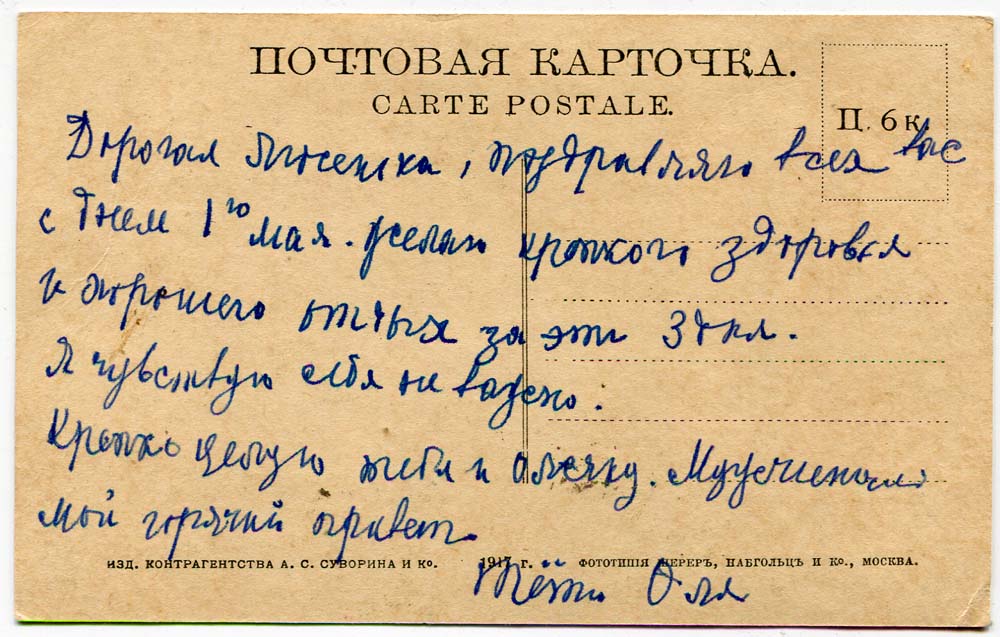 ПОЧТОВАЯ КАРТОЧКА.
CARTE POSTALE.
Ц. 6 к.
Дорогая Люсенька, поздравляю всех вас
с днем 1го мая. Желаю крепкого здоровья
и хорошего отдыха за эти 3 дня.
Я чувствую себя не важно.
Крепко целую тебя и
мой горячий привет.
Тётя Оля
ИЗД. КОНТРАГЕНТСТВА А. С. СУВОРИНА И Ко. 1917 г. ФОТОТИПІЯ ШЕРЕРЪ, НАБГОЛЬЦЪ И Ко., МОСКВА.